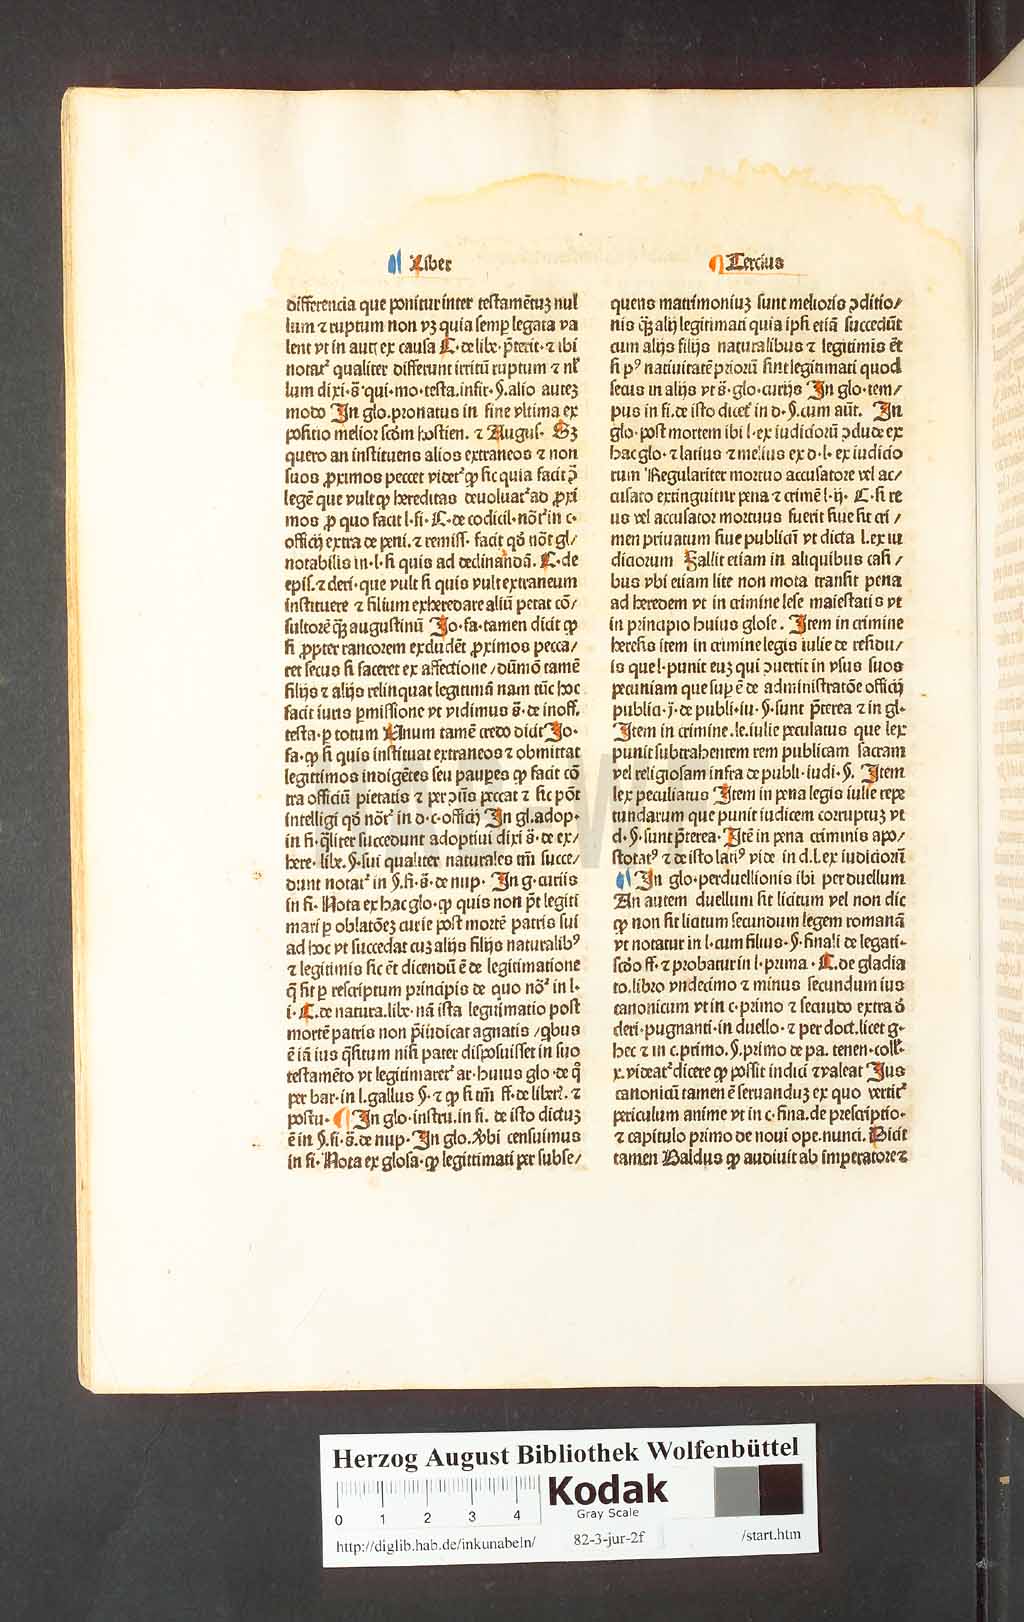 Liber
Tercius
differencia que ponitur inter testamētuꝫ nul
lum ⁊ ruptum non vꝫ quia semꝑ legata va
lent vt in aut̄ ex causa C· de libe· p̄terit· ⁊ ibi
notatʳ qualiter differunt irritū ruptum ⁊ nł
lum dixi·s̄·qui·mo·testa.infir·§.alio auteꝫ
modo In glo.pronatus in fine vltima ex
positio melior scd̄m hostien. ⁊ Augus· Sꝫ
quero an instituens alios extraneos ⁊ non
suos ꝓximos peccet videtʳ ꝙ sic quia facit ↄ̄
legē que vult ꝙ hereditas deuoluatʳ ad ꝓxi
mos ꝓ quo facit l·fi· C· de codicil·nōtʳ in c·
officij extra de peni. ⁊ remiss· facit qd̄ nōt gl/
notabilis in·l·si quis ad declinandā. C·de
epis.⁊ cleri·que vult si quis vult extraneum
instituere ⁊ filium exheredare aliū petat cō/
sultorē qꝫ augustinū Jo·fa·tamen dicit ꝙ
si ꝓpter rancorem excludēt ꝓximos pecca/
ret secus si faceret ex affectione/dūmō tamē
filijs ⁊ alijs relinquat legitimā nam tūc hoc
facit iuris ꝑmissione vt vidimus s̄·de inoff.
testa·ꝑ totum Unum tamē credo dicit Jo·
fa·ꝙ si quis instituat extraneos ⁊ obmittat
legittimos indigētes seu pauꝑes ꝙ facit cō
tra officiū pietatis ⁊ per ↄn̄s peccat ⁊ sic pōt
intelligi qd̄ nōtʳ in d·c·officij In gl.adop·
in fi·q̄liter succedunt adoptiui dixi s̄·de ex/
here·libe.§·sui qualiter naturales tm̄ succe/
dunt notatʳ in §.fi·s̄·de nup· In g·curiis
in fi·Nota ex hac glo·ꝙ quis non p̄t legiti
mari ꝑ oblatōeꝫ curie post mortē patris sui
ad hoc vt succedat cuꝫ alijs filijs naturalibꝰ
⁊ legitimis sic ēt dicendū ē de legitimatione
q̄ fit ꝑ rescriptum principis de quo nōʳ in l·
i·C.de natura.libe·nā ista legitimatio post
mortē patris non p̄iudicat agnatis /qbus
ē iā ius q̄situm nisi pater disposuisset in suo
testamēto vt legitimaretʳ ar·huius glo·de q̄
per bar·in l.gallus §·⁊ ꝙ si tm̄ ff·de liberʳ.⁊
postu· In glo·instru.in fi. de isto dictuꝫ
ē in §.fi·s̄.de nup·In glo.Ubi censuimus
in fi·Nota ex glosa·ꝙ legittimati per subse/
quens matrimoniuꝫ sunt melioris ↄditio/
nis qꝫ alij legitimati quia ipsi etiā succedūt
cum alijs filijs naturalibus ⁊ legitimis ēt
si pꝰ natiuitatē priorū sint legitimati quod
secus in alijs vt s̄·glo·curijs In glo·tem/
pus in fi.de isto dicetʳ in d·§.cum aūt. In
glo·post mortem ibi l·ex iudiciorū ↄclude ex
hac glo·⁊ latius ⁊ melius ex d·l·ex iudicio
rum Regulariter mortuo accusatore vel ac/
cusato extinguitur pena ⁊ crimē l·ij· C·si re
us vel accusator mortuus fuerit siue sit cri /
men priuatum siue publicū vt dicta l.ex iu
diciorum Fallit etiam in aliquibus casi /
bus vbi etiam lite non mota transit pena
ad heredem vt in crimine lese maiestatis vt
in principio huius glose. Item in crimine
heresis item in crimine legis iulie de residu/
is que l·punit euꝫ qui ↄuertit in vsus suos
pecuniam que suꝑ ē de administratōe officij
publica·j·de publi·iu·§·sunt p̄terea ⁊ in gl·
Item in crimine.le.iulie peculatus que lex
punit subtrahentem rem publicam sacram
vel religiosam infra de publi·iudi·§. Item
lex peculiatus Item in pena legis iulie repe
tundarum que punit iudicem corruptuꝫ vt
d·§·sunt p̄terea· Itē in pena criminis apo/
stotatꝰ ⁊ de isto latiꝰ vide in d.l.ex iudiciorū
In glo·perduellionis ibi per duellum
An autem duellum sit licitum vel non dic
ꝙ non sit licitum secundum legem romanā
vt notatur in l·cum filius·§·finali de legati·
scd̄o ff·⁊ probatur in l·prima· C.de gladia
to.libro vndecimo ⁊ minus secundum ius
canonicum vt in c·primo ⁊ secundo extra d̄
cleri·pugnanti·in duello·⁊ per doct.licet g·
hec ⁊ in c.primo.§.primo de pa.tenen·coll·
x.videatʳ dicere ꝙ possit indici ⁊ valeat Jus
canonicū tamen ē seruanduꝫ ex quo vertitʳ
periculum anime vt in c·fina.de prescriptio·
⁊ capitulo primo de noui ope.nunci. Dicit
tamen Baldus ꝙ audiuit ab imperatore ⁊
HAB-WF
Herzog August Bibliothek Wolfenbüttel
0 1 2 3 4
Kodak
Gray Scale
http://diglib.hab.de/inkunabeln/ 82-3-jur-2f /start.htm